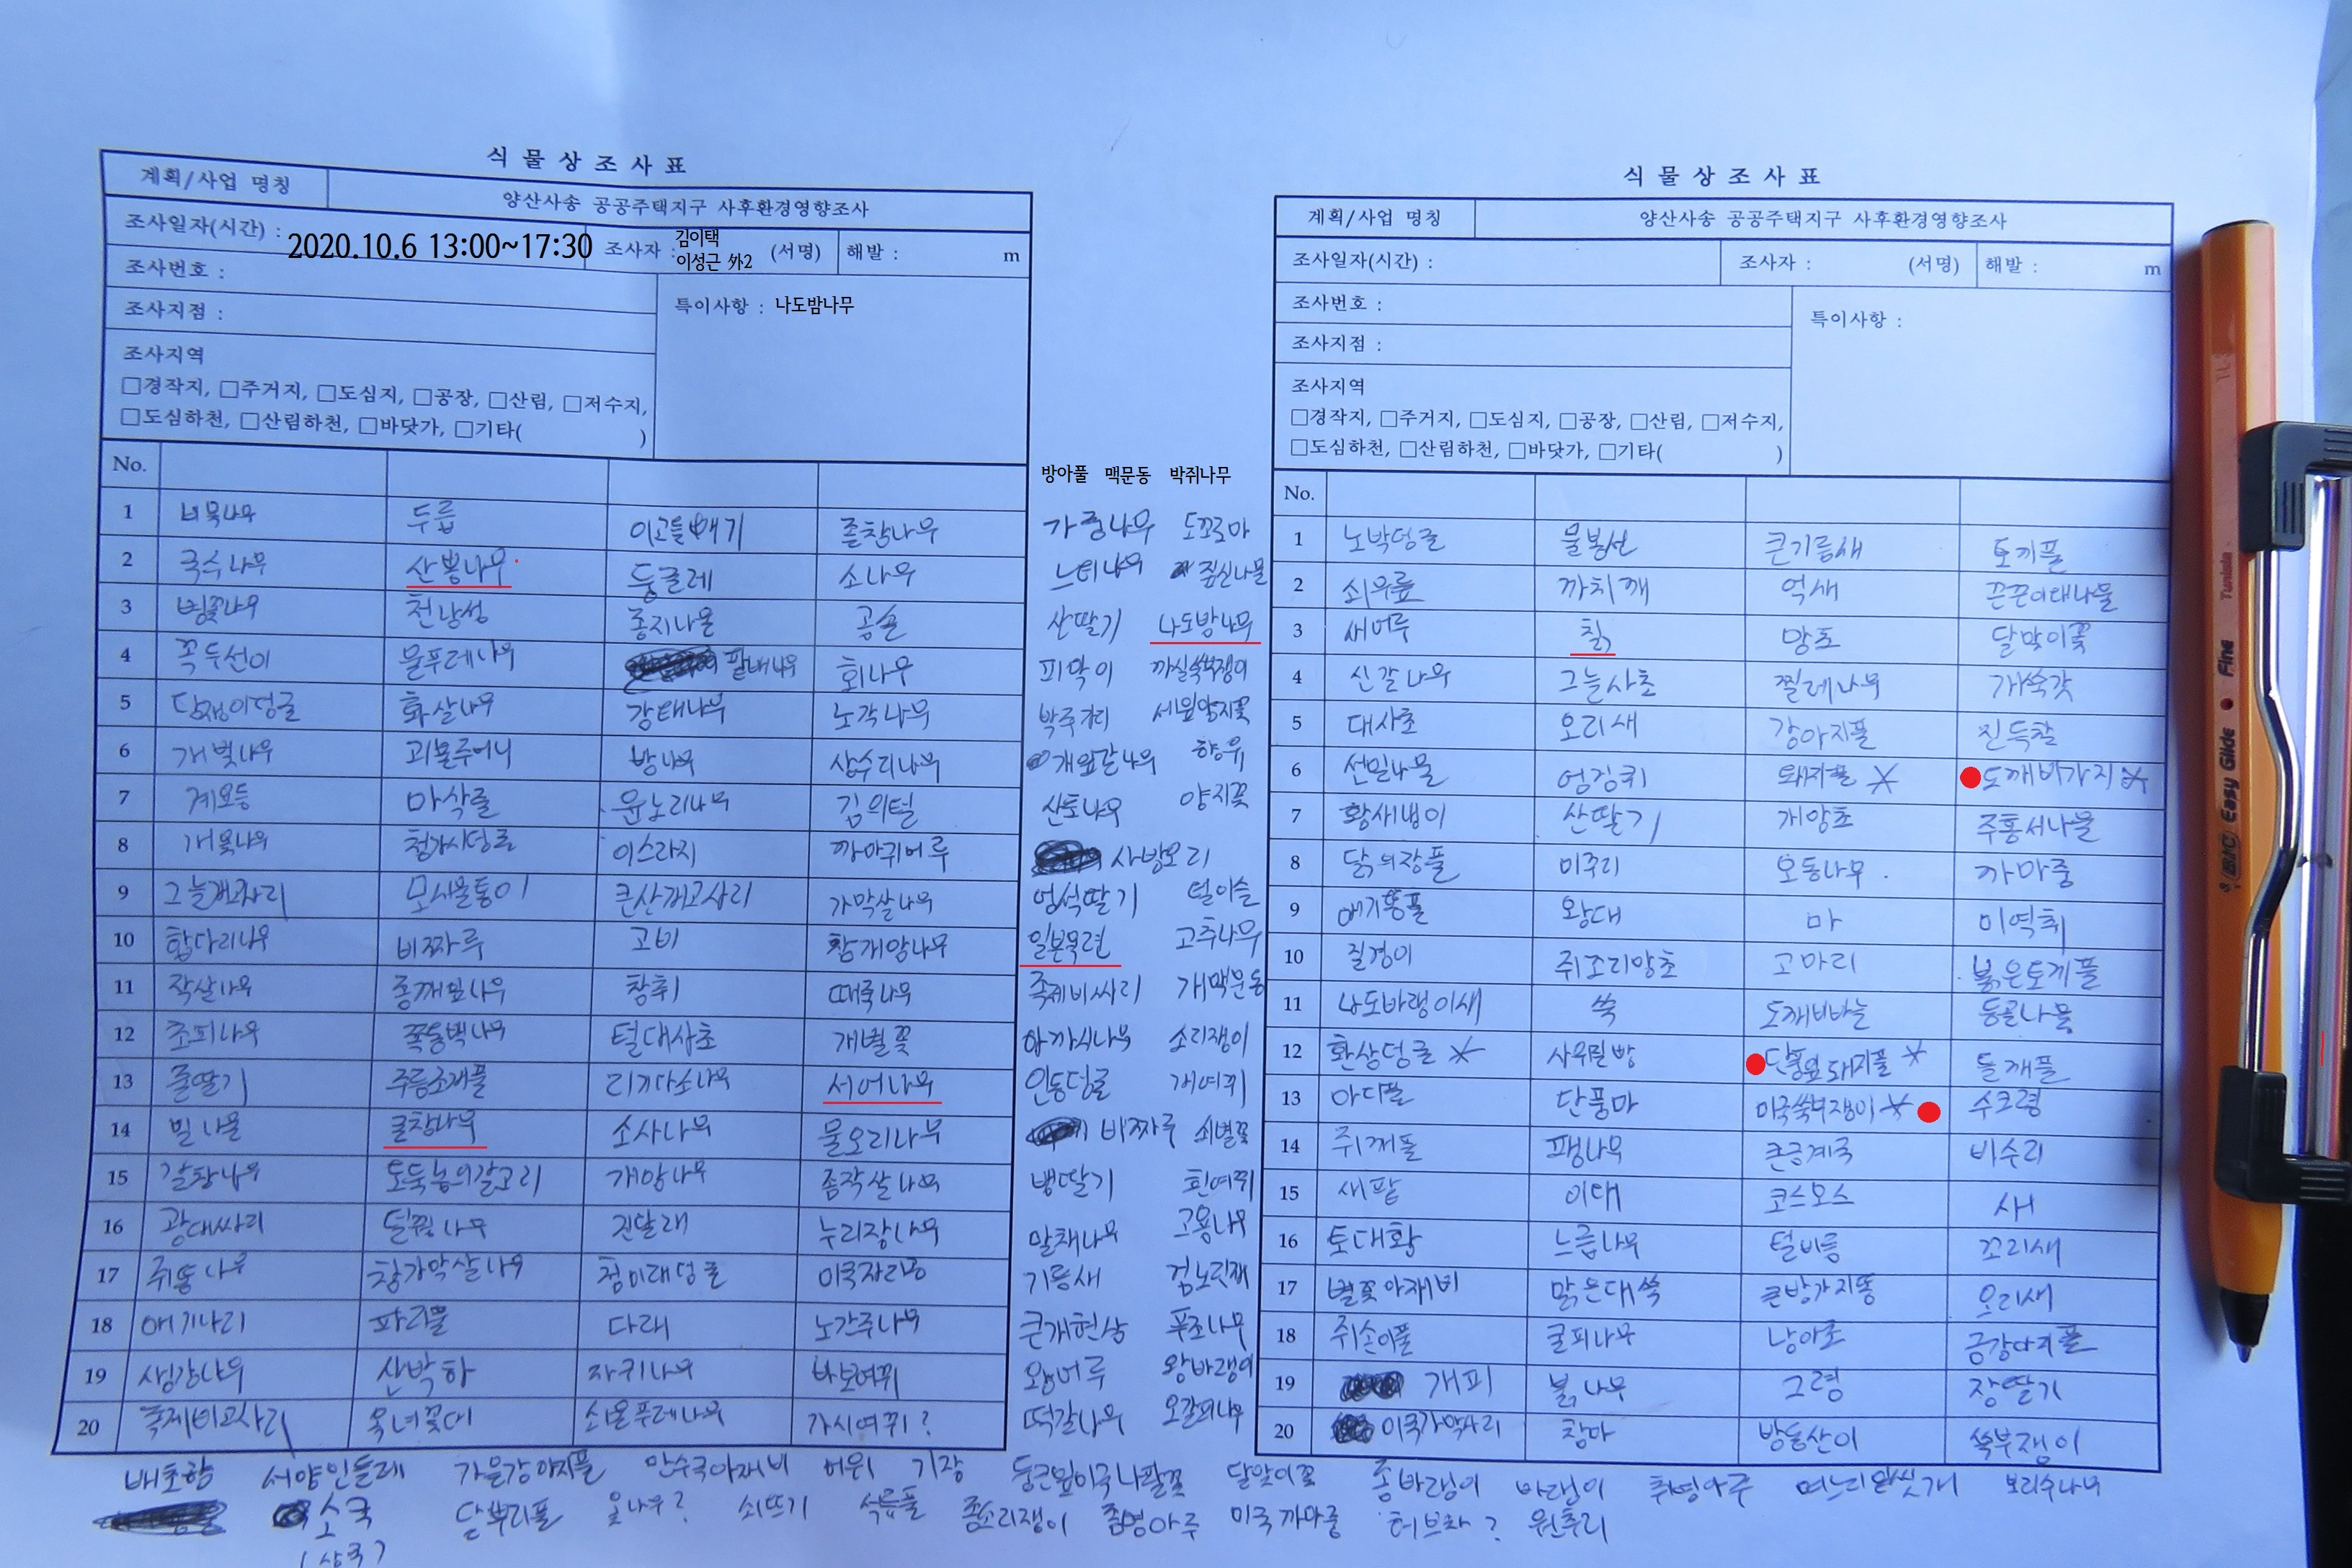 식 물 상 조 사 표
계획/사업 명칭 양산사송 공공주택지구 사후환경영향조사
조사일자(시간) : 2020.10.6 13:00~17:30 조사자 : 김이택 이성근 外2 (서명) 해발 : m
조사번호 :
조사지점 :
특이사항 : 나도밤나무
조사지역
□경작지, □주거지, □도심지, □공장, □산림, □저수지,
□도심하천, □산림하천, □바닷가, □기타( )
No.
1 비목나무 두릅 이고들빼기 졸참나무
2 국수나무 산뽕나무 둥굴레 소나무
3 벚꽃나무 천남성 종지나물 곰솔
4 꼭두선이 물푸레나무 팥배나무 회나무
5 담쟁이덩굴 화살나무 감태나무 노각나무
6 개벚나무 괴불주머니 밤나무 상수리나무
7 계요등 마삭줄 윤노리나무 김의털
8 개옻나무 청가시덩굴 이스라지 까마귀머루
9 그늘개고사리 모시물통이 큰산개고사리 가막살나무
10 합다리나무 비짜루 고비 참개암나무
11 작살나무 좀깨잎나무 참취 때죽나무
12 초피나무 쪽동백나무 털대사초 개별꽃
13 줄딸기 주름조개풀 리기다소나무 서어나무
14 밀나물 굴참나무 소사나무 물오리나무
15 갈참나무 도둑놈의갈고리 개암나무 좀작살나무
16 광대싸리 덜꿩나무 진달래 누리장나무
17 쥐똥나무 참가막살나무 청미래덩굴 미국자리공
18 애기나리 파리풀 다래 노간주나무
19 생강나무 산박하 자귀나무 바보여뀌
20 족제비고사리 옥녀꽃대 쇠물푸레나무 가시여뀌?
방아풀 맥문동 박쥐나무
가죽나무 도꼬로마
느티나무 짚신나물
산딸기 나도밤나무
피막이 까실쑥부쟁이
박주가리 세잎양지꽃
개옻갈나무 향유
산초나무 양지꽃
사방오리
멍석딸기 털이슬
일본목련 고추나무
족제비싸리 개맥문동
아까시나무 소리쟁이
인동덩굴 개여뀌
비짜루 쇠별꽃
뱀딸기 흰여뀌
말채나무 고욤나무
기름새 검노린재
큰개현삼 푸조나무
왕머루 왕바랭이
떡갈나무 오갈피나무
식 물 상 조 사 표
계획/사업 명칭 양산사송 공공주택지구 사후환경영향조사
조사일자(시간) : 조사자 : (서명) 해발 : m
조사번호 :
조사지점 :
특이사항 :
조사지역
□경작지, □주거지, □도심지, □공장, □산림, □저수지,
□도심하천, □산림하천, □바닷가, □기타( )
No.
1 노박덩굴 물봉선 큰기름새 토끼풀
2 쇠무릎 까치깨 억새 끈끈이대나물
3 새머루 칡 망초 달맞이꽃
4 신갈나무 그늘사초 찔레나무 개쑥갓
5 대사초 오리새 강아지풀 진득찰
6 선밀나물 엉겅퀴 돼지풀 * 도깨비가지 *
7 황새냉이 산딸기 개망초 주홍서나물
8 닭의장풀 미주리 오동나무 까마중
9 애기똥풀 왕대 마 미역취
10 질경이 쥐꼬리망초 고마리 붉은토끼풀
11 나도바랭이새 쑥 도깨비바늘 등골나물
12 환삼덩굴 * 사위질빵 단풍잎돼지풀 * 들깨풀
13 마디풀 단풍마 미국쑥부쟁이 * 수크령
14 쥐깨풀 팽나무 큰금계국 비수리
15 새팥 이대 코스모스 새
16 토대황 느릅나무 털비름 꼬리새
17 별꽃아재비 맑은대쑥 큰방가지똥 오리새
18 쥐손이풀 굴피나무 낭아초 금강아지풀
19 개피 붉나무 그령 장딸기
20 미국가막사리 참마 방동산이 쑥부쟁이
배초향 서양민들레 가을강아지풀 만수국아재비 머위 기장 둥근잎미국나팔꽃 달맞이꽃 좀바랭이 바랭이 취명아주 며느리밑씻개 보리수나무
소국 닭뿌리풀 옻나무? 쇠뜨기 석류풀 좀소리쟁이 좀명아주 미국까마중 허브차? 원추리
(산국?)
BIC Easy Glide Fine Tunisia